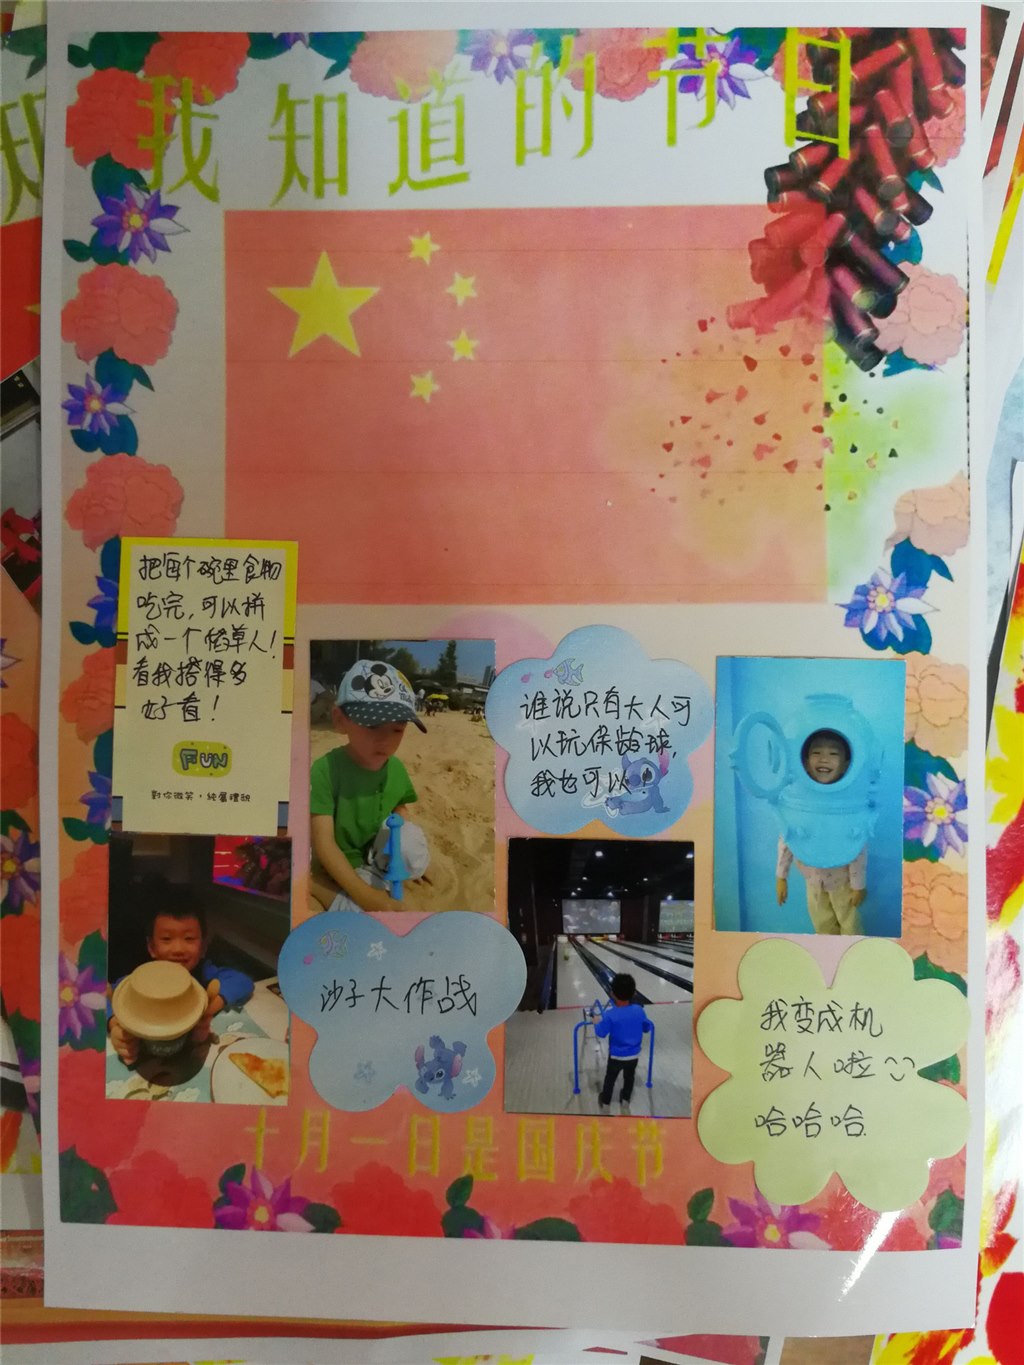 我知道的节日
把每个碗里食物
吃完,可以拼
成一个稻草人!
看我搭得多
好看!
FUN
對你微笑,純屬禮貌
谁说只有大人可
以玩保龄球,
我也可以
沙子大作战
我变成机
器人啦
哈哈哈
十月一日是国庆节